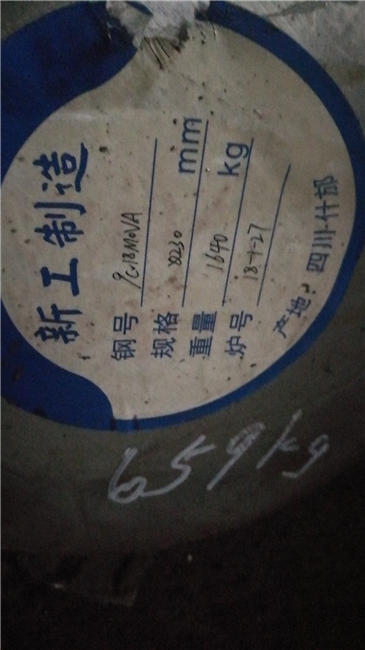 新工制造
钢号 9Cr18MoVA
规格 ∅230 mm
重量 1640 kg
炉号 18-1-27
产地：四川·什邡
659kg